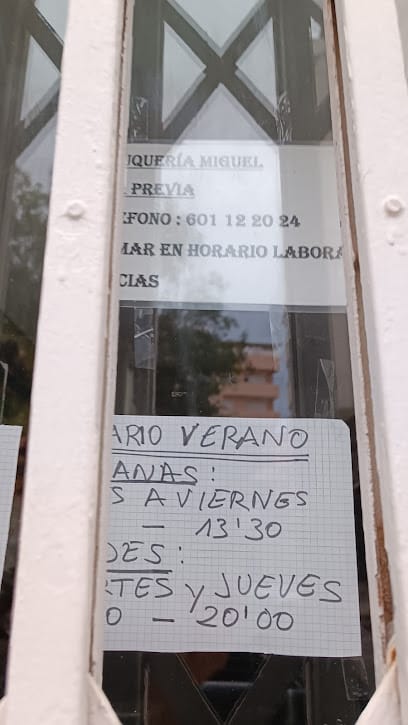 UQUERÍA MIGUEL
PREVIA
FONO : 601 12 20 24
MAR EN HORARIO LABORA
CIAS
ARIO VERANO
ANAS:
S A VIERNES
- 13'30
DES:
RTES y JUEVES
0 - 20'00